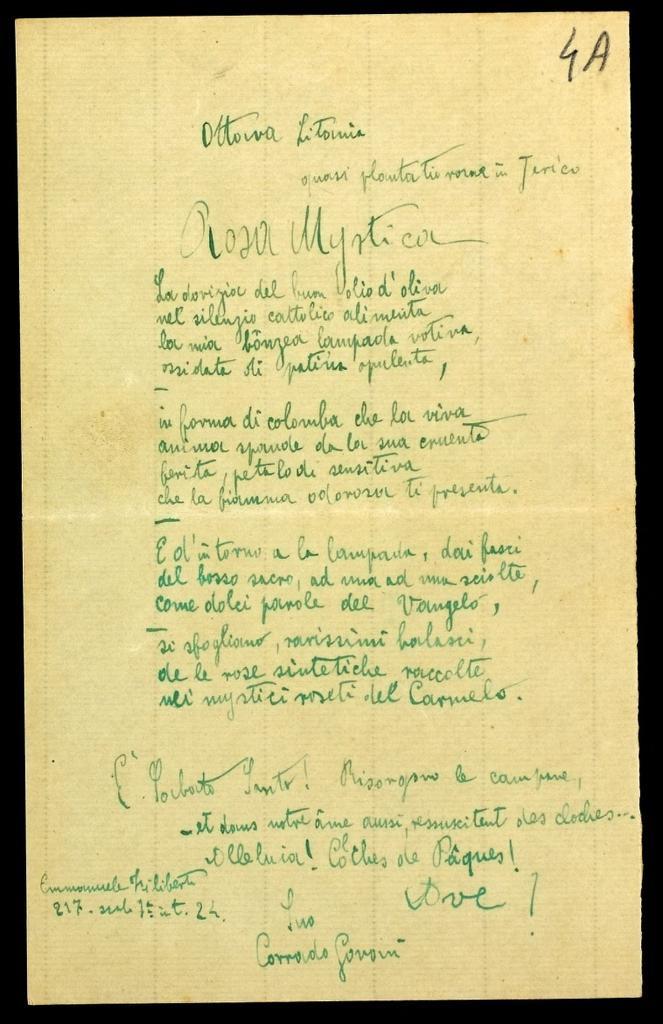 4A
Ottava Litania
quasi plantatio rosae in Jerico
Rosa Mystica
La dovizia del buon olio d'oliva
nel silenzio cattolico alimenta
la mia bônzea lampada votiva,
ossidata di patina opulenta,
in forma di colomba che la viva
anima spande da la sua cruenta
ferita, petalo di sensitiva
che la fiamma odorosa ti presenta.
E d'intorno a la lampada, dai fasci
del bosso sacro, ad una ad una sciolte,
come dolci parole del Vangelo,
si sfogliano, rarissimi balasci,
de le rose sintetiche raccolte
nei mystici roseti del Carmelo.
E' Sabato Santo! Risorgono le campane,
- et dans notre âme aussi, ressuscitent des cloches...
Alleluia! Cloches de Pâques!
Ave!
Emmanuele Filiberto
217. scala 7ª int. 24.
Suo
Corrado Govoni